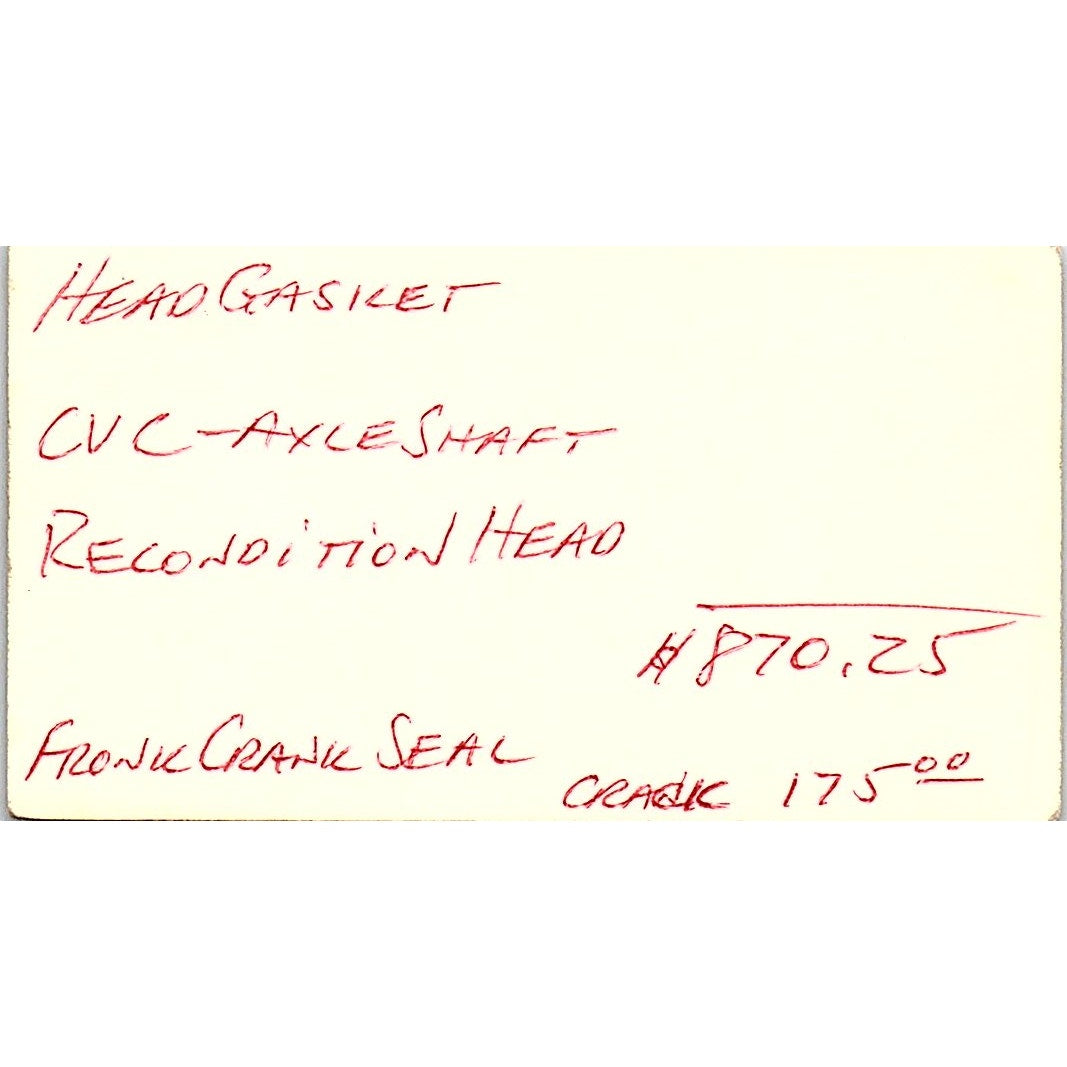 HEAD GASKET
CVC-AXLE SHAFT
RECONDITION HEAD
$870.25
FRONK CRANK SEAL
CRACK 175.00